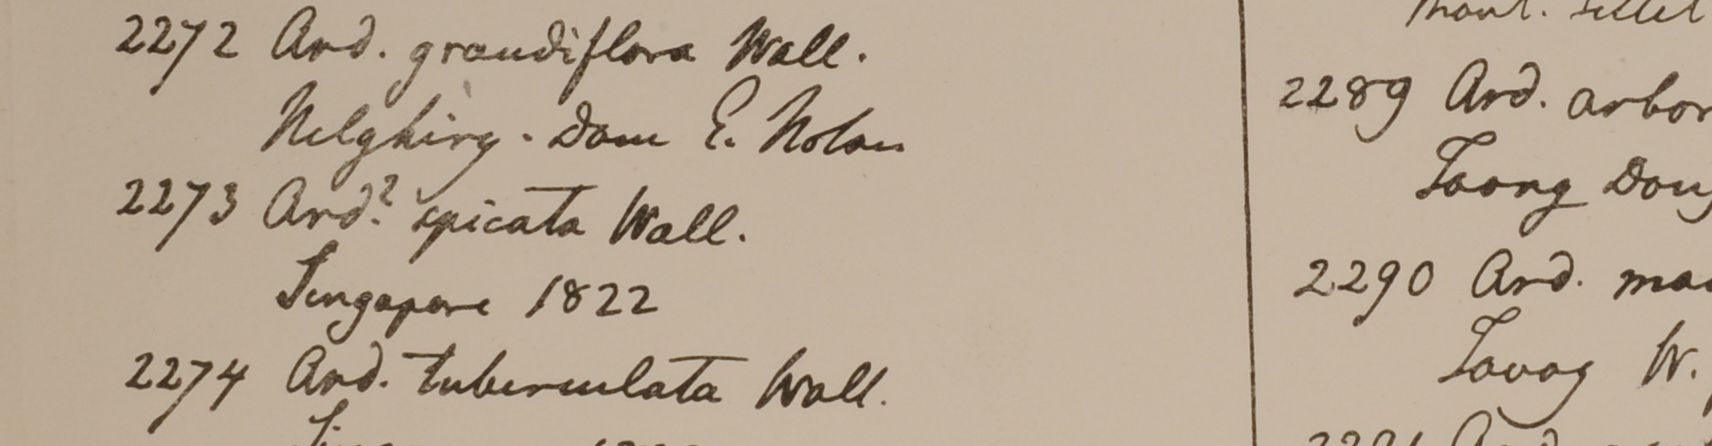 2272 Ard. grandiflora Wall.
Nelghiry. Dom E. Nolan
2273 Ard.? spicata Wall.
Singapore 1822
2274 Ard. tuberculata Wall.
2289 Ard. arbor
Taong Dong
2290 Ard. mac
Tavoy W.
2291 Ard